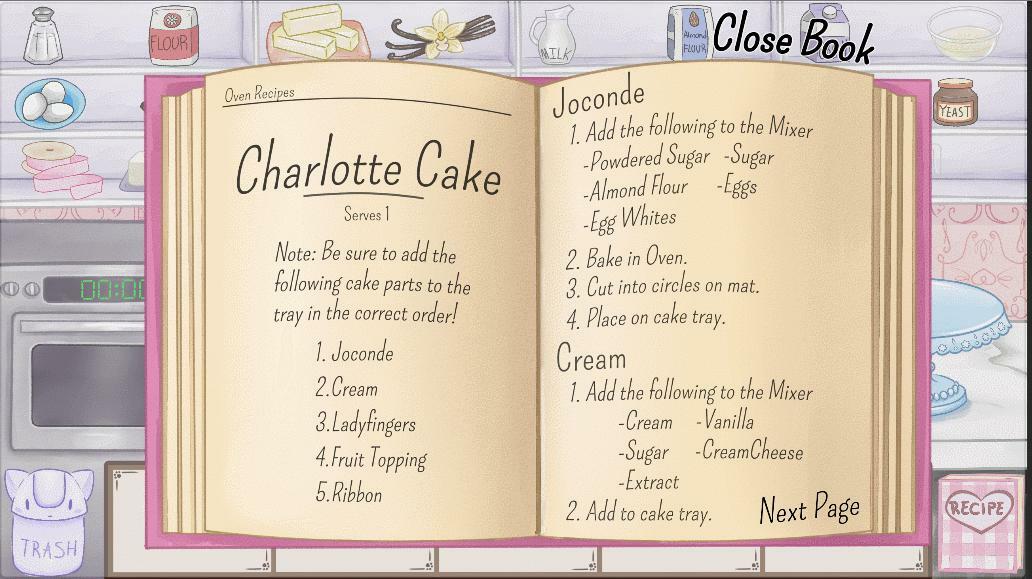 FLOUR
MILK
Almond
FLOUR
Close Book
YEAST
00:00
TRASH
RECIPE
Oven Recipes
Charlotte Cake
Serves 1
Note: Be sure to add the
following cake parts to the
tray in the correct order!
1. Joconde
2.Cream
3.Ladyfingers
4.Fruit Topping
5.Ribbon
Joconde
1. Add the following to the Mixer
-Powdered Sugar -Sugar
-Almond Flour -Eggs
-Egg Whites
2. Bake in Oven.
3. Cut into circles on mat.
4. Place on cake tray.
Cream
1. Add the following to the Mixer
-Cream -Vanilla
-Sugar -CreamCheese
-Extract
2. Add to cake tray.
Next Page